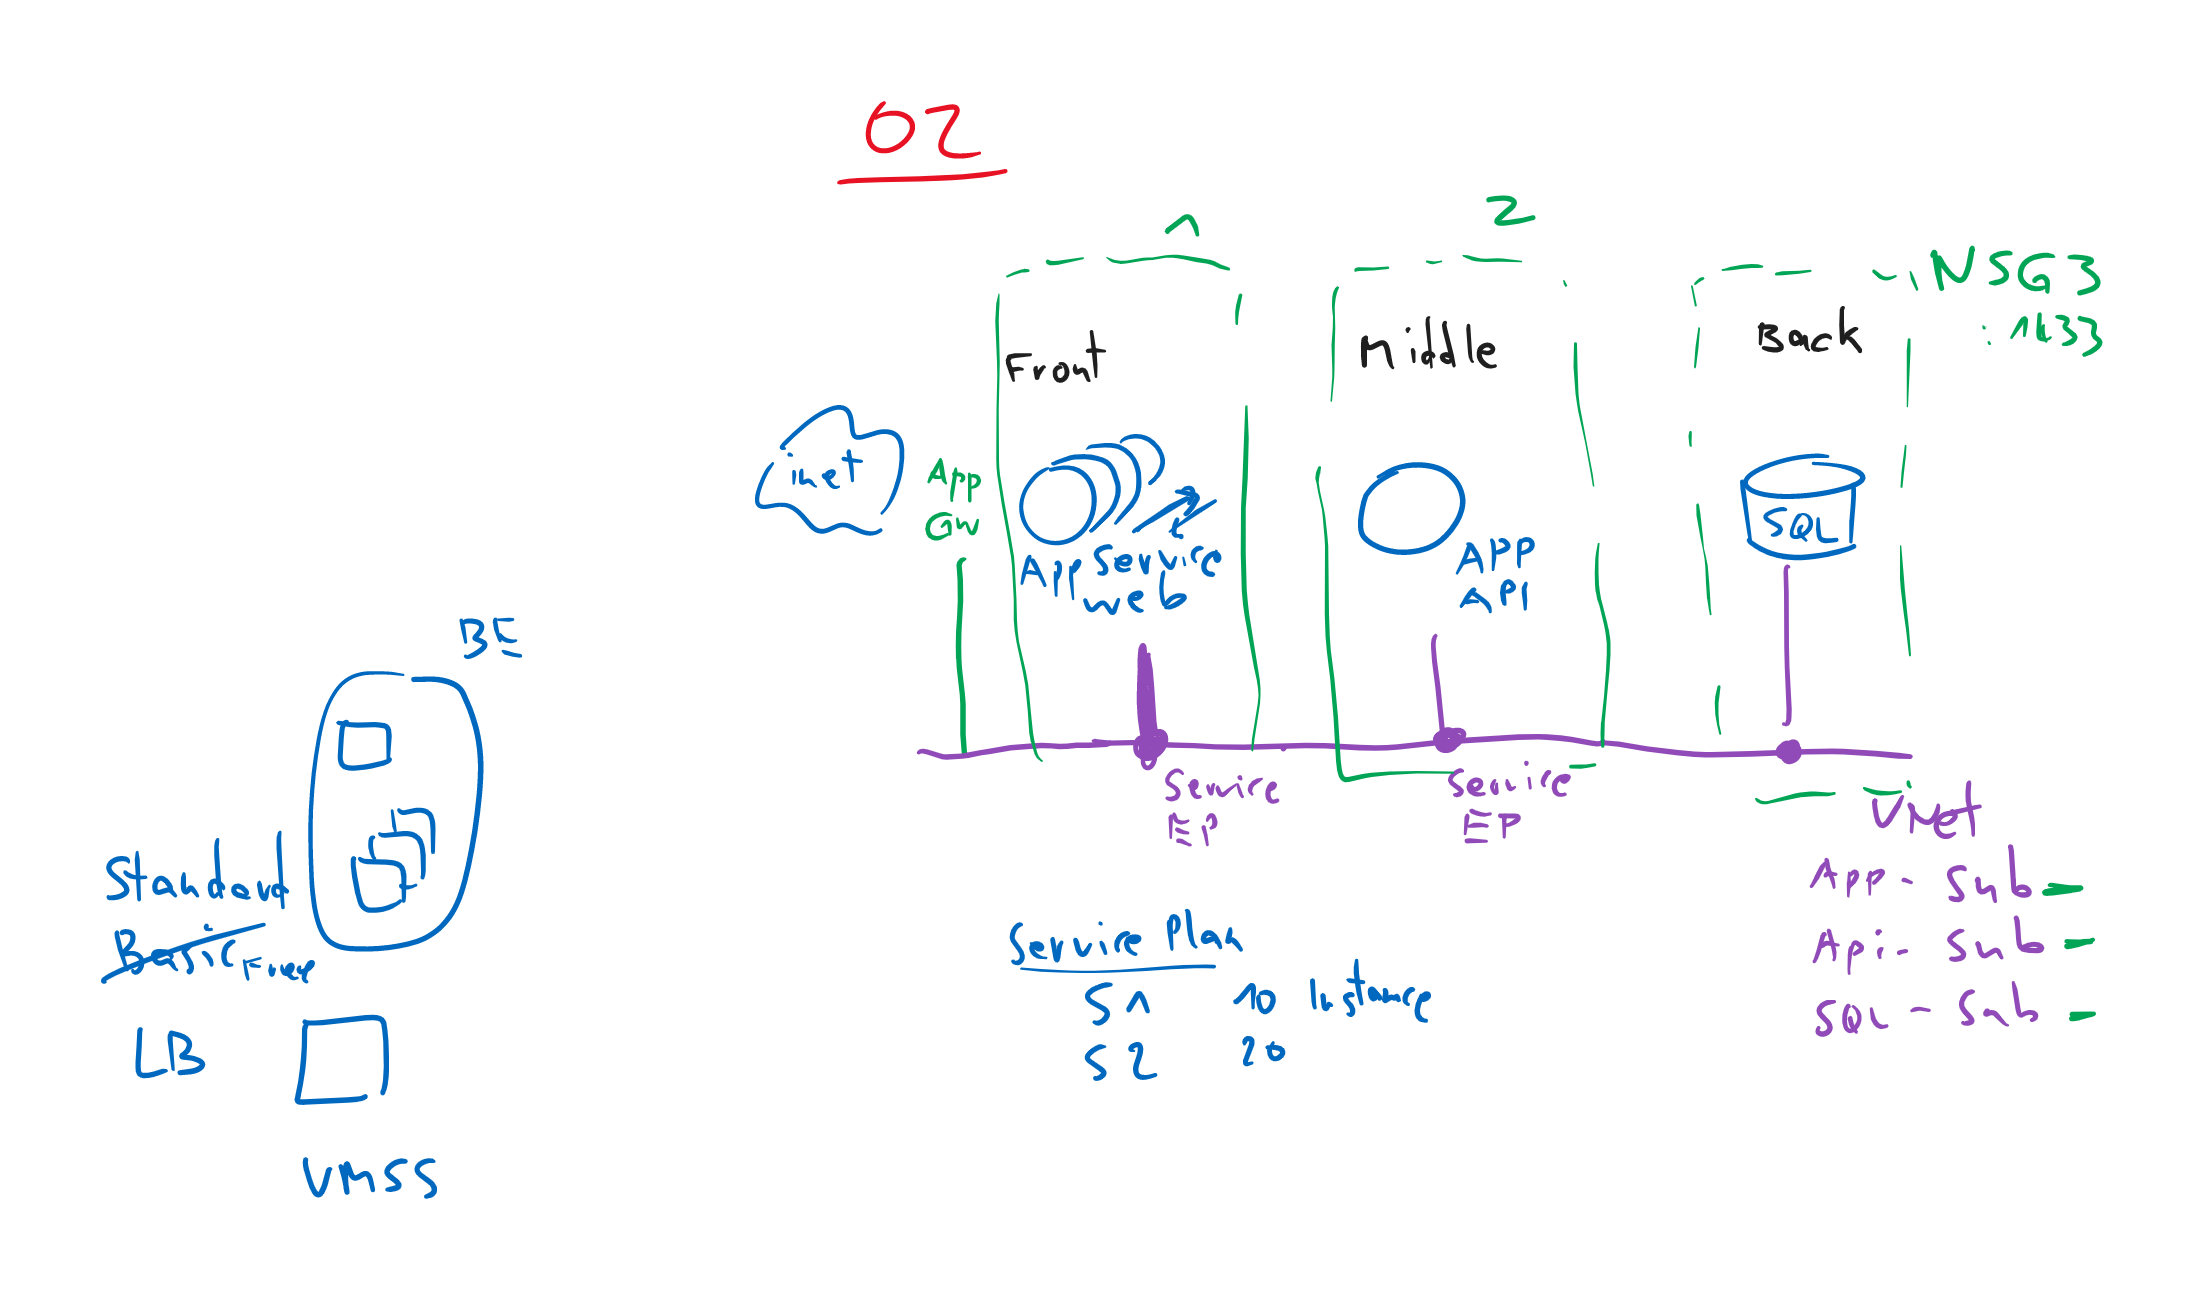 02
1
2
NSG3
: 1433
Front
Middle
Back
inet
App
GW
App Service
web
APP
API
SQL
Service
EP
Service
EP
VNet
App - Sub -
Api - Sub -
SQL - Sub -
BE
Standard
Basic Free
LB
VMSS
Service Plan
S1 10 Instance
S2 20